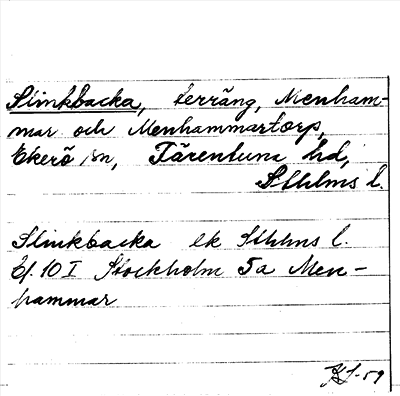 Slinkbacka, terräng, Menham-
mar och Menhammartorp,
Ekerö sn, Färentuna hd,
Sthlms l.
Slinkbacka ek Sthlms l.
Bl. 10 I Stockholm 5a Men-
hammar
-59